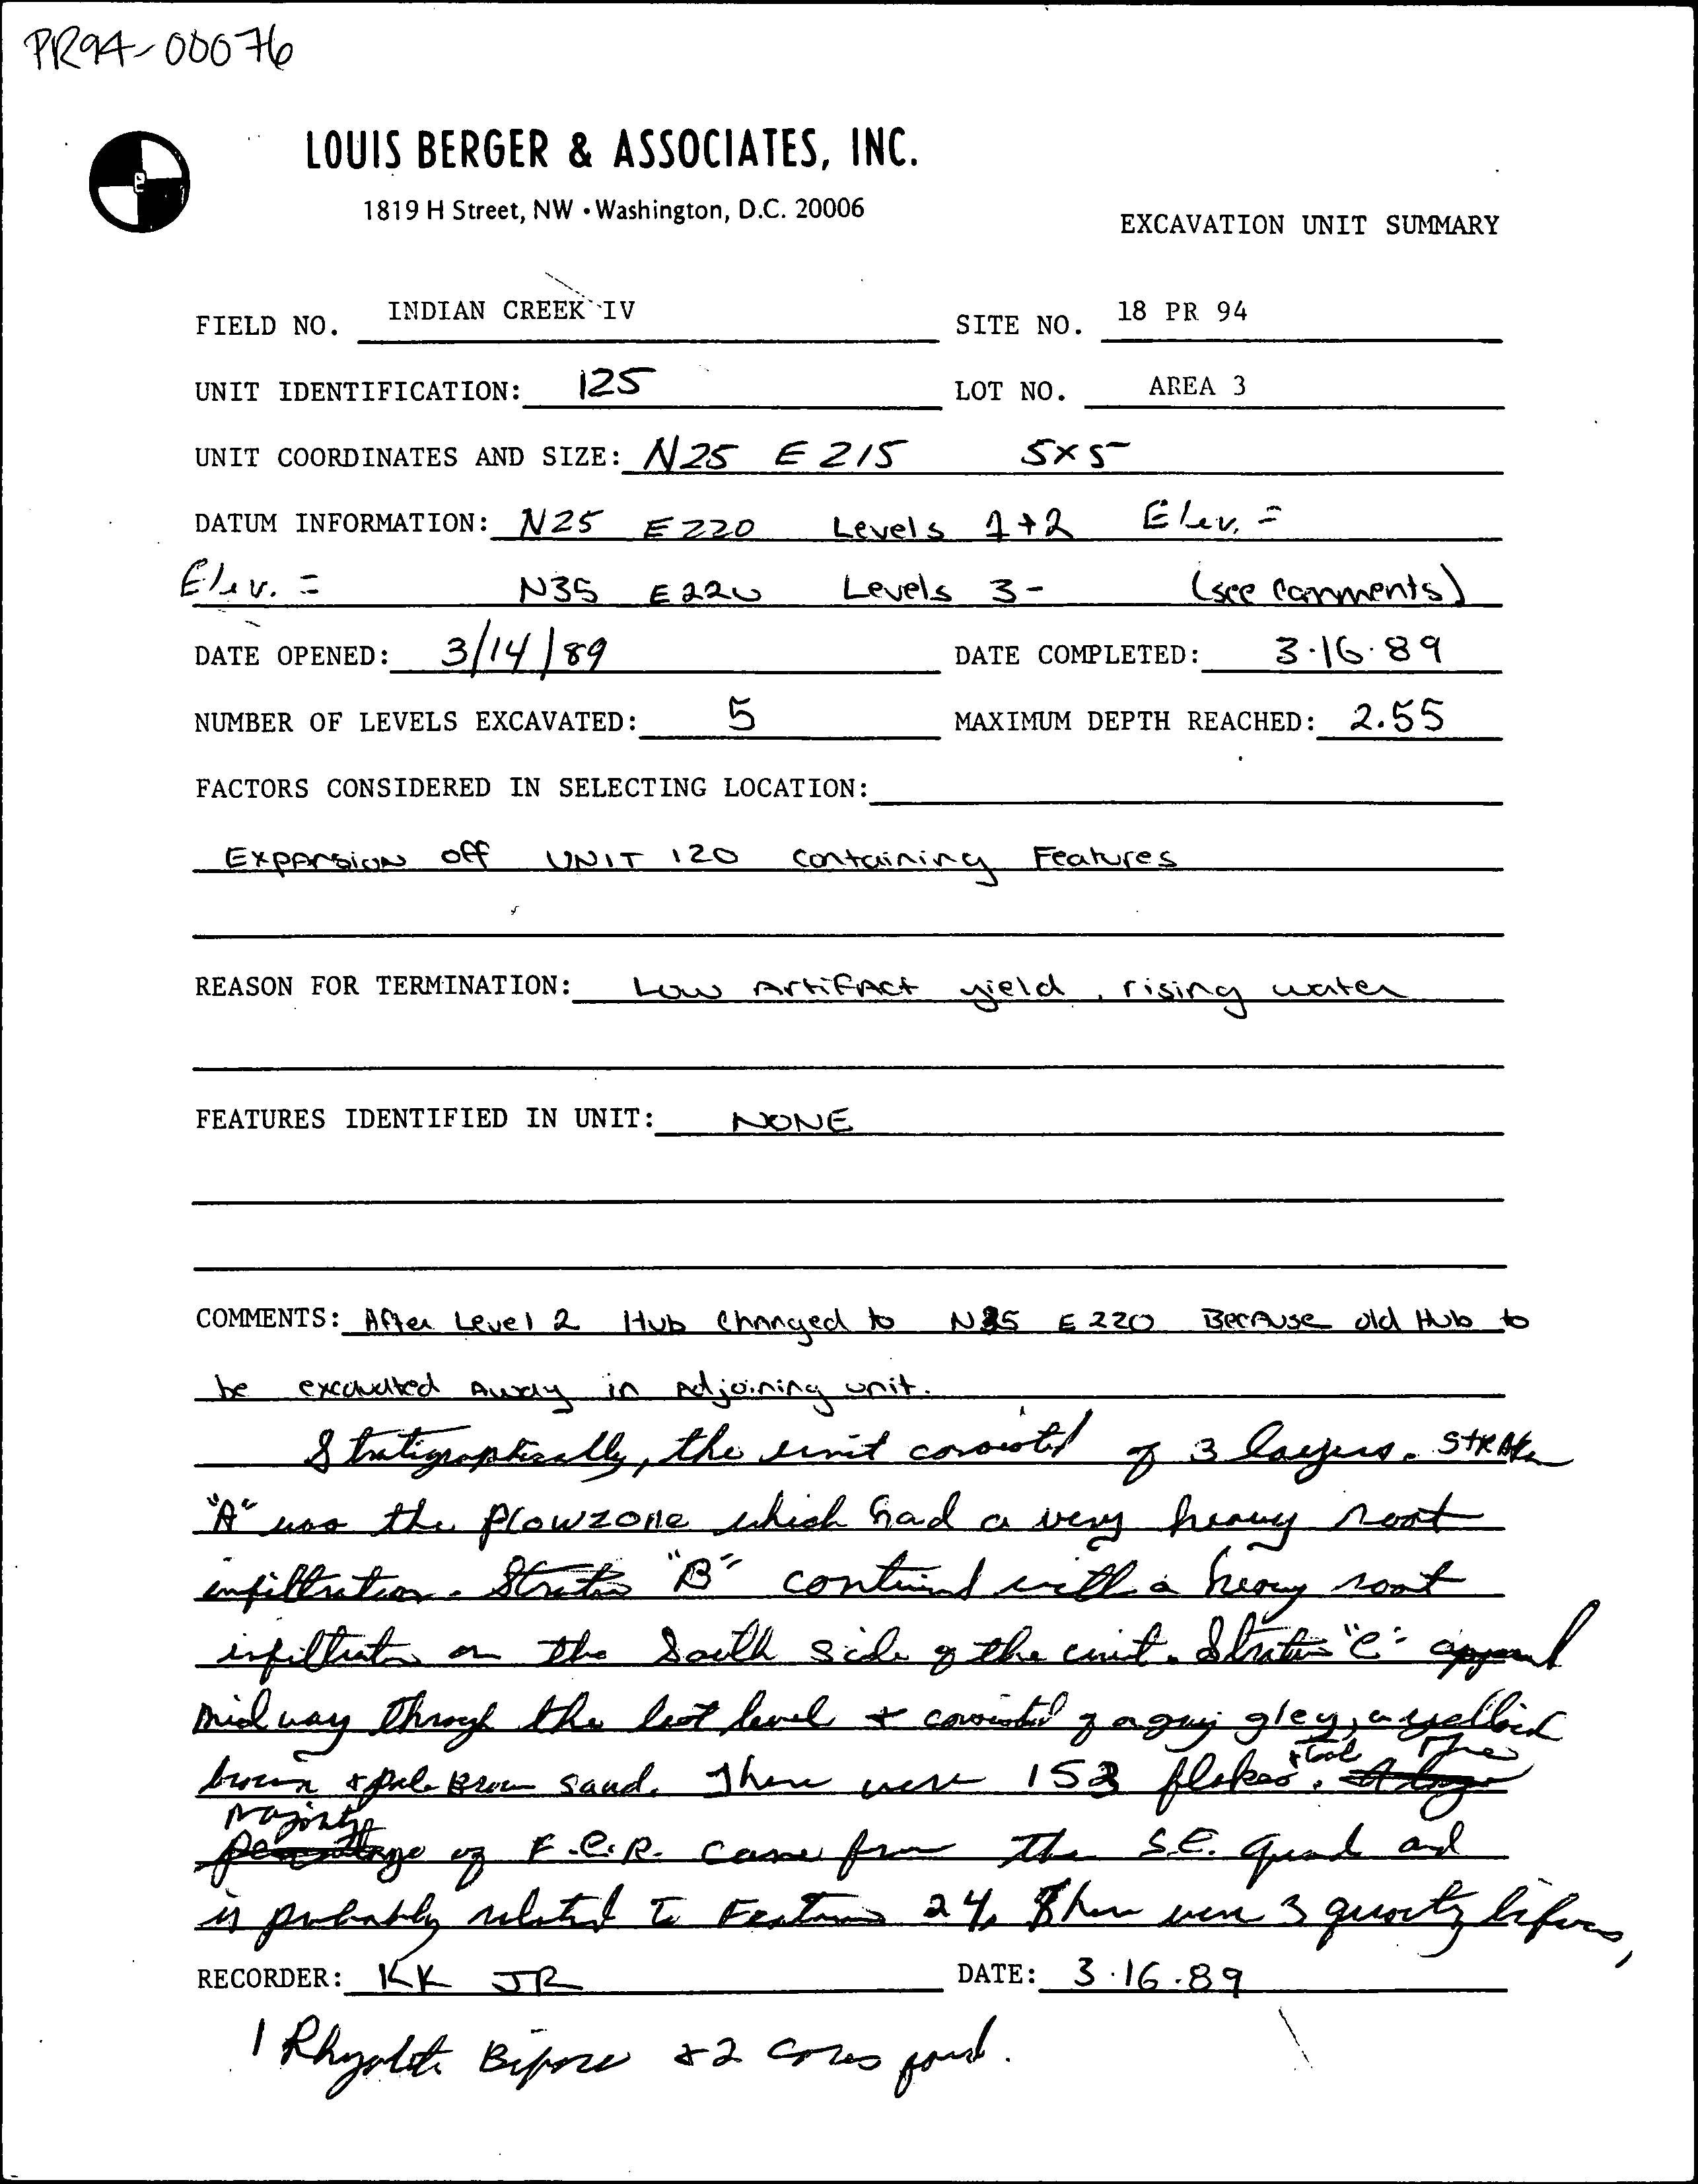 PR94-00076
LOUIS BERGER & ASSOCIATES, INC.
1819 H Street, NW • Washington, D.C. 20006
EXCAVATION UNIT SUMMARY
FIELD NO. INDIAN CREEK IV SITE NO. 18 PR 94
UNIT IDENTIFICATION: 125 LOT NO. AREA 3
UNIT COORDINATES AND SIZE: N25 E215 5x5
DATUM INFORMATION: N25 E220 Levels 1+2 Elev. =
Elev. = N35 E220 Levels 3- (see comments)
DATE OPENED: 3/14/89 DATE COMPLETED: 3.16.89
NUMBER OF LEVELS EXCAVATED: 5 MAXIMUM DEPTH REACHED: 2.55
FACTORS CONSIDERED IN SELECTING LOCATION:
Expansion off UNIT 120 containing Features
REASON FOR TERMINATION: Low Artifact yield, rising water
FEATURES IDENTIFIED IN UNIT: NONE
COMMENTS: After Level 2 Hub changed to N35 E220 Because old Hub to
be excavated Away in Adjoining unit.
Stratigraphically, the unit consisted of 3 layers. Strata
"A" was the plowzone which had a very heavy root
infiltration. Strata "B" continued with a heavy root
infiltration on the South side of the unit. Strata "C" appeared
midway through the last level & consisted of a gray gley, a yellowish
brown & pale Brown sand. There were 153 flakes total. The
Majority of F.C.R. came from the S.E. quad and
is probably related to Feature 24. There were 3 quartz bifaces,
RECORDER: KK JR DATE: 3.16.89
1 Rhyolite Biface & 2 cores found.